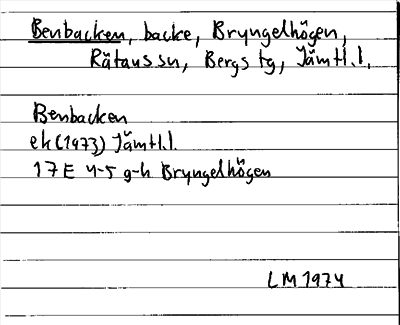 Benbacken, backe, Bryngelhögen,
Rätans sn, Bergs tg, Jämtl.l.
Benbacken
ek (1973) Jämtl.l.
17E 4-5 g-h Bryngelhögen
LM 1974